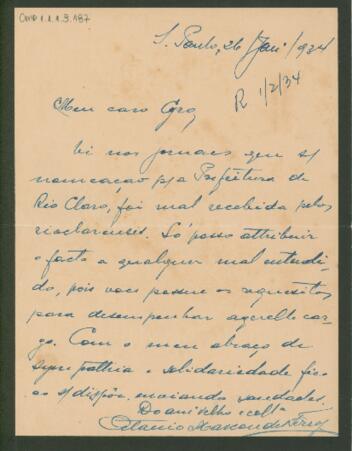 CMP 1.1.3.187
S. Paulo, 26 Jan/1934
R 1/2/34
Meu caro Cyro,
Vi nos jornaes que s/
nomeação p/a Prefeitura de
Rio Claro, foi mal recebida pelos
rioclarenses. Só posso attribuir
o facto a qualquer mal entendi-
do, pois voce possue os requesitos
para desempenhar aquelle car-
go. Com o meu abraço de
sympathia e solidariedade fico
ao s/ dispôr, enviando saudades.
Do am. velho e coll.